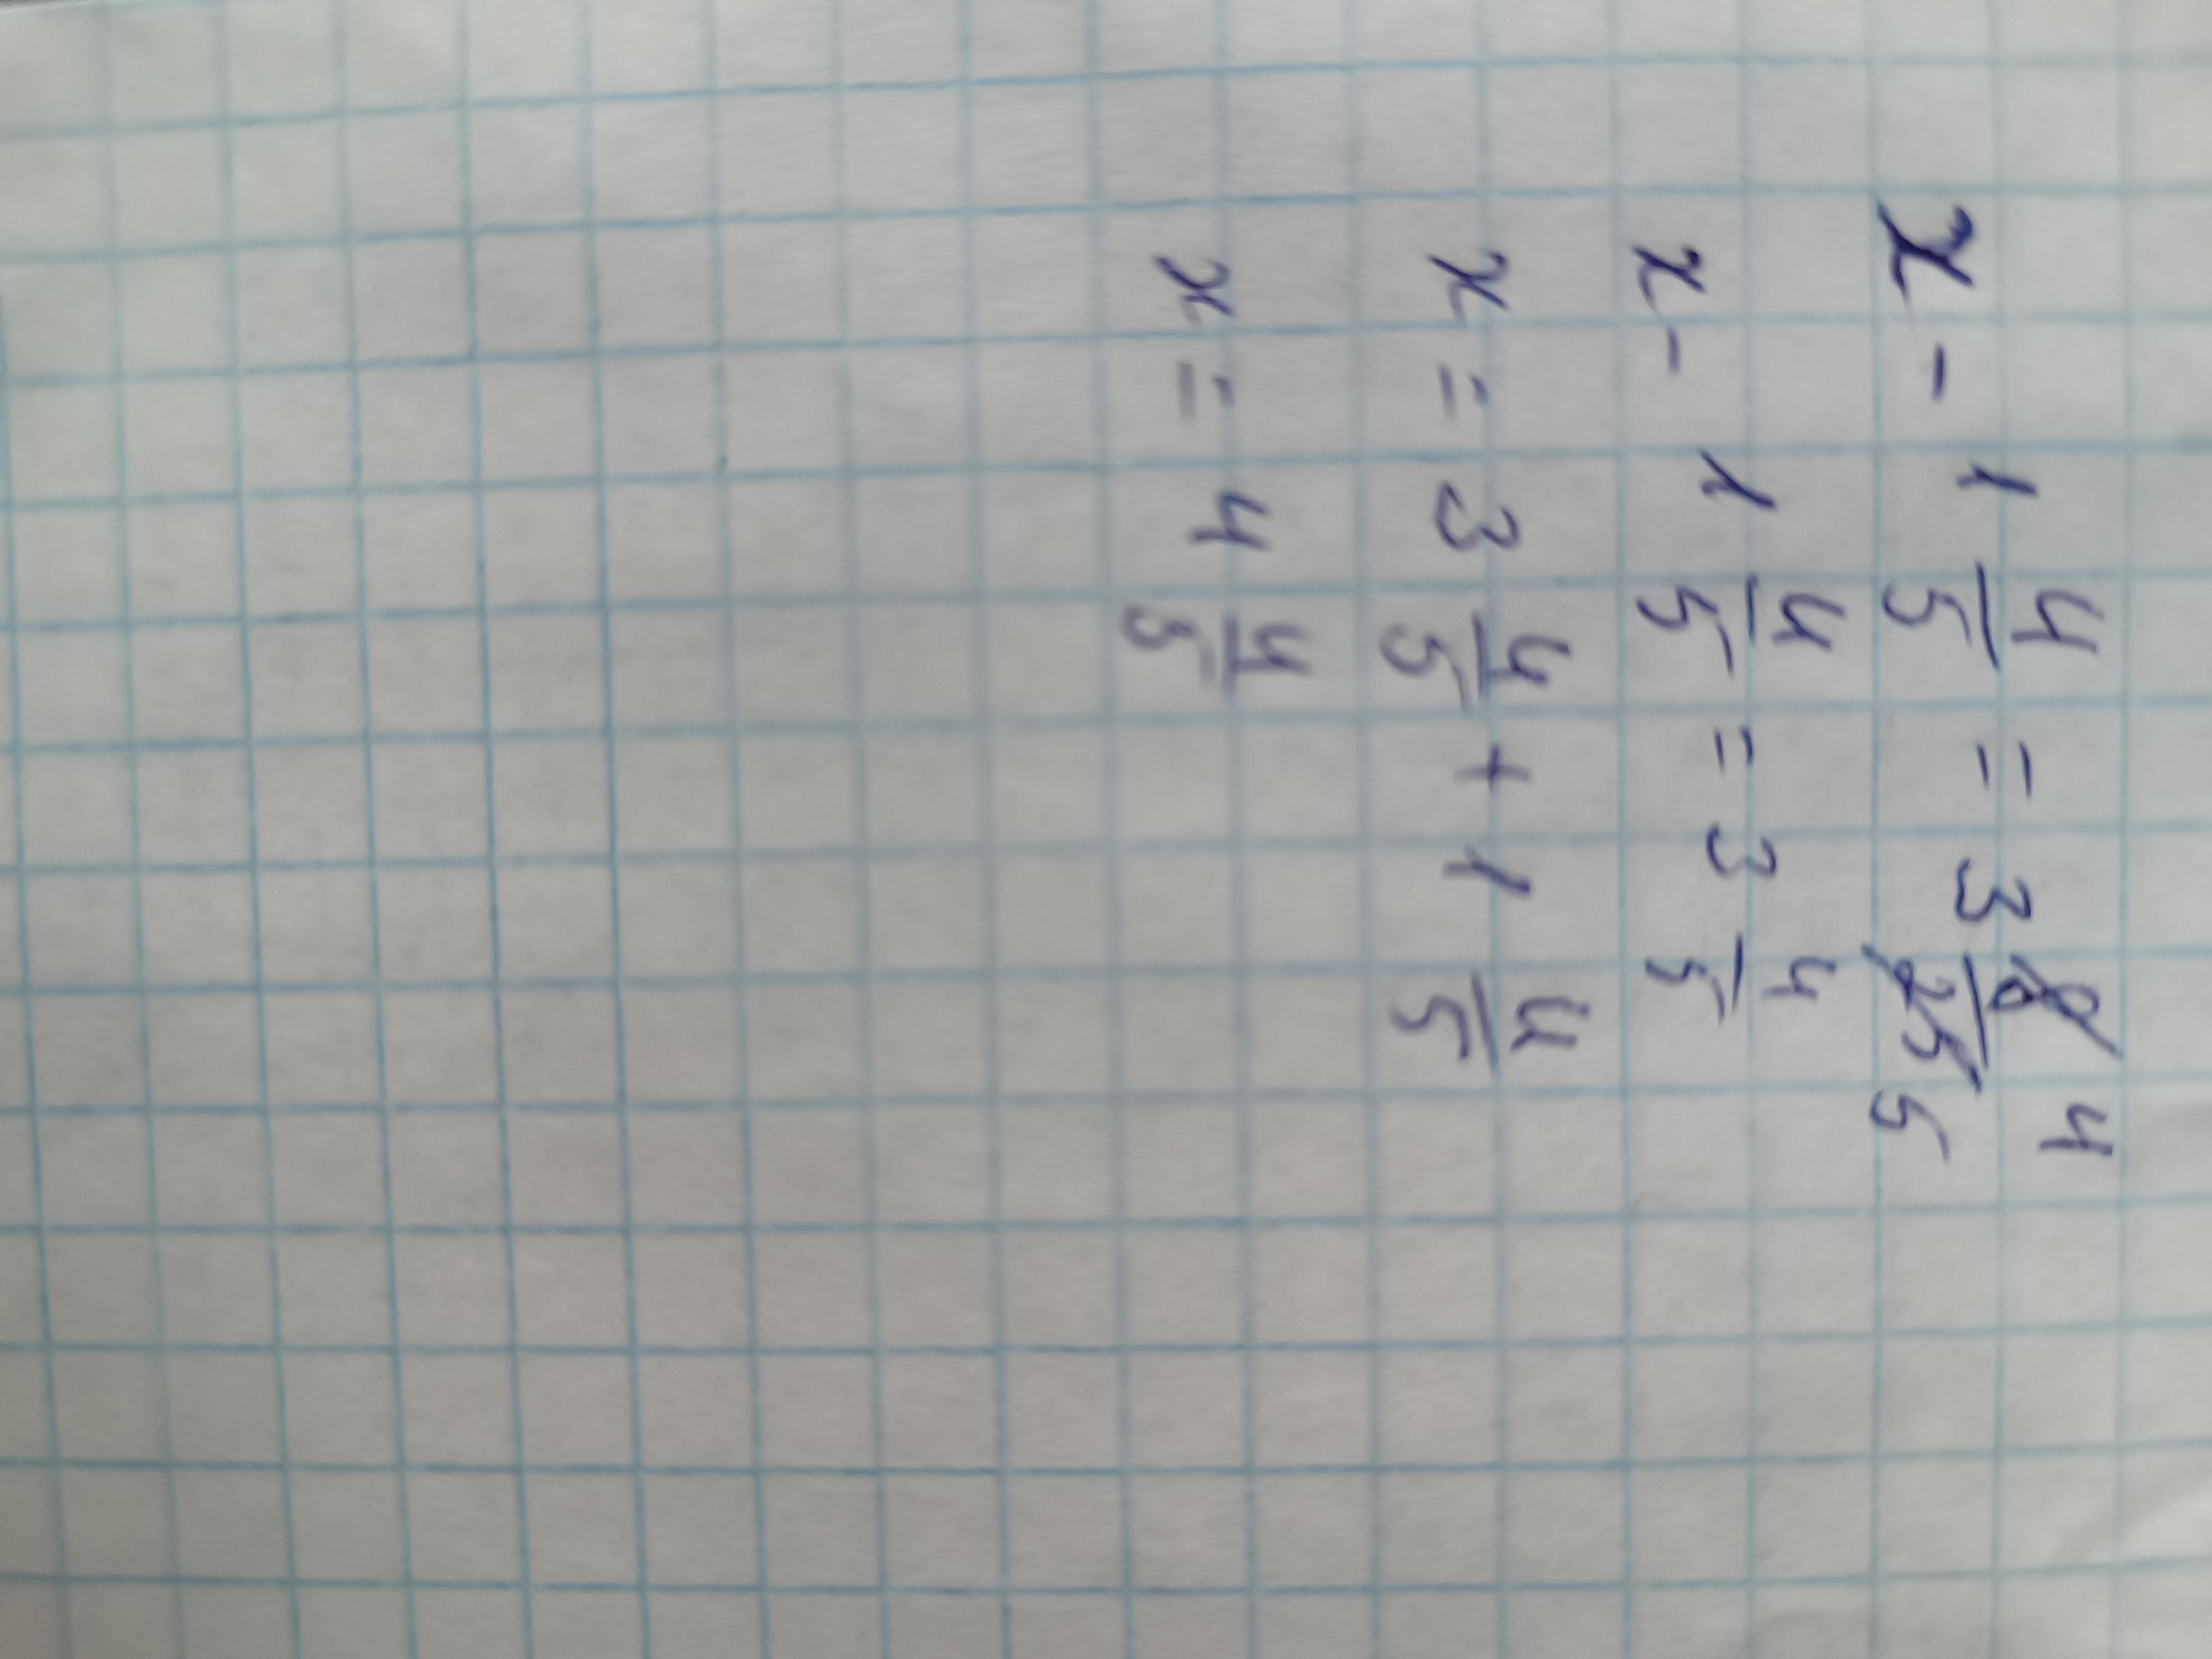 x - 1 4/5 = 3 8/25 4/5
x - 1 4/5 = 3 4/5
x = 3 4/5 + 1 4/5
x = 4 4/5